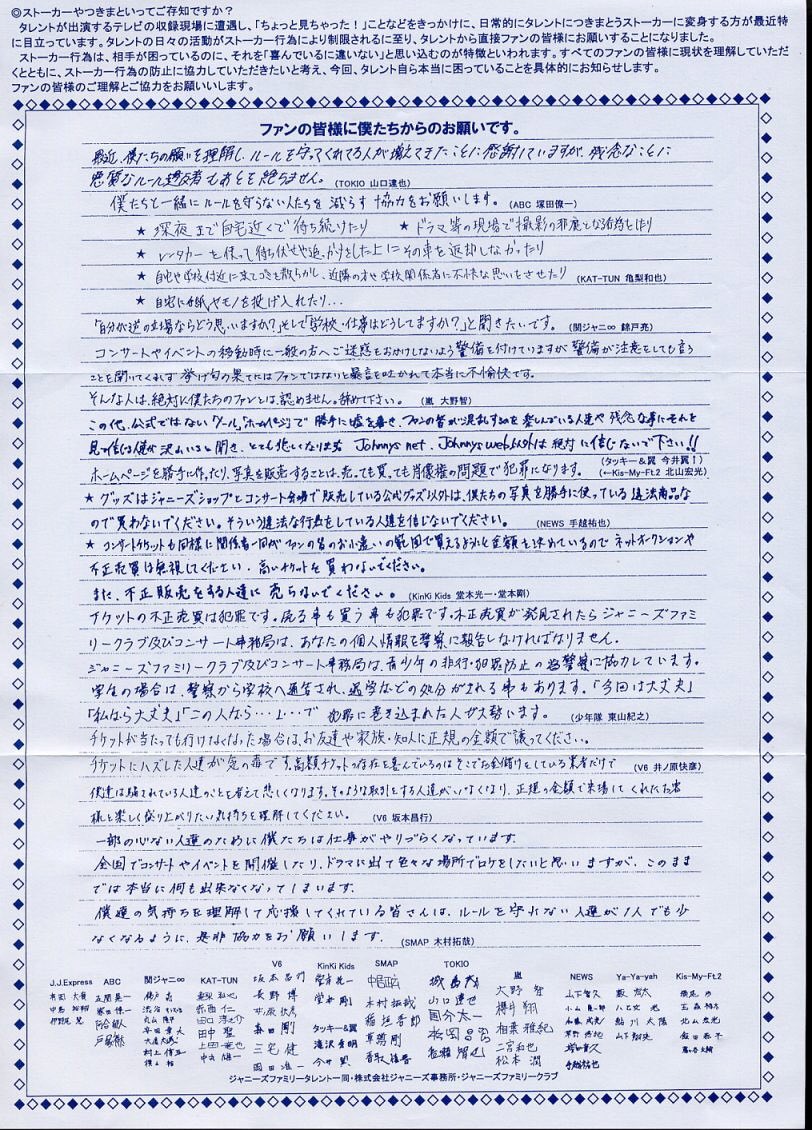 ◎ストーカーやつきまといってご存知ですか？
タレントが出演するテレビの収録現場に遭遇し、「ちょっと見ちゃった！」ことなどをきっかけに、日常的にタレントにつきまとうストーカーに変身する方が最近特
に目立っています。タレントの日々の活動がストーカー行為により制限されるに至り、タレントから直接ファンの皆様にお願いすることになりました。
ストーカー行為は、相手が困っているのに、それを「喜んでいるに違いない」と思い込むのが特徴といわれます。すべてのファンの皆様に現状を理解していただ
くとともに、ストーカー行為の防止に協力していただきたいと考え、今回、タレント自ら本当に困っていることを具体的にお知らせします。
ファンの皆様のご理解とご協力をお願いいします。
ファンの皆様に僕たちからのお願いです。
最近、僕たちの願いを理解し、ルールを守ってくれてる人が増えてきたことに感謝していますが、残念なことに
悪質なルール違反者もあとを絶ちません。(TOKIO 山口達也)
僕たちと一緒にルールを守らない人たちを減らす協力をお願いします。(ABC 塚田僚一)
★深夜まで自宅近くで待ち続けたり ★ドラマ等の現場で撮影の邪魔となる行為をしたり
★レンタカーを使って待ち伏せや追っかけをした上にその車を返却しなかったり
★自宅や学校付近に来てゴミを散らかし、近隣の方や学校関係者に不快な思いをさせたり (KAT-TUN 亀梨和也)
★自宅に手紙やモノを投げ入れたり…
「自分が逆の立場ならどう思いますか？」そして「学校・仕事はどうしてますか？」と聞きたいです。(関ジャニ∞ 錦戸亮)
コンサートやイベントの移動時に一般の方へご迷惑をおかけしないよう警備を付けていますが 警備が注意をしても言う
ことを聞いてくれず 挙げ句の果てにはファンではないと暴言を吐かれて本当に不愉快です。
そんな人は、絶対に僕たちのファンとは、認めません。辞めて下さい。(嵐 大野智)
この他、公式ではない「メール」「ホームページ」で勝手に嘘を書き、ファンの皆が混乱するのを楽しんでいる人達や残念な事にそれを
見て信じる人達が沢山いると聞き、とても悲しくなります Johnnys net、Johnnys web以外は絶対に信じないで下さい!! (タッキー&翼 今井翼↑)
ホームページを勝手に作ったり、写真を販売することは、売っても買っても肖像権の問題で犯罪になります。(←Kis-My-Ft.2 北山宏光)
★グッズはジャニーズショップとコンサート会場で販売している公式グッズ以外は、僕たちの写真を勝手に使っている違法商品な
ので買わないでください。そういう違法な行為をしている人達を信じないでください。(NEWS 手越祐也)
★コンサートチケットも同様に関係者一同がファンの皆のお小遣いの範囲で買えるように金額を決めているのでネットオークションや
不正売買は無視してください。高いチケットを買わないでください。
また、不正販売をする人達に売らないでください。(KinKi Kids 堂本光一・堂本剛)
チケットの不正売買は犯罪です。売る事も買う事も犯罪です。不正売買が発見されたらジャニーズファミ
リークラブ及びコンサート事務局は、あなたの個人情報を警察に報告しなければなりません。
ジャニーズファミリークラブ及びコンサート事務局は、青少年の非行・犯罪防止の為警察に協力しています。
学生の場合は、警察から学校へ通告され、退学などの処分がされる事もあります。「今回は大丈夫」
「私なら大丈夫」「この人なら…」…で 犯罪に巻き込まれた人が大勢います。(少年隊 東山紀之)
チケットが当たっても行けなくなった場合は、お友達や家族・知人に正規の金額で譲ってください。
チケットにハズレた人達が気の毒です。高額チケットの存在を喜んでいるのはそこでお金儲けをしている業者だけで (V6 井ノ原快彦)
僕達は騙されている人達のことを考えて悲しくなります。そのような取引をする人達がいなくなり、正規の金額で来場してくれたお客
様と楽しく盛り上がりたい気持ちを理解してください。(V6 坂本昌行)
一部の心ない人達のために僕たちは仕事がやりづらくなっています。
全国でコンサートやイベントを開催したり、ドラマに出て色々な場所でロケをしたいと思いますが、このまま
では本当に何も出来なくなってしまいます。
僕達の気持ちを理解して応援してくれている皆さんは、ルールを守れない人達が1人でも少
なくなるように、是非協力をお願いします。(SMAP 木村拓哉)
J.J.Express ABC 関ジャニ∞ KAT-TUN V6 KinKi Kids SMAP TOKIO 嵐 NEWS Ya-Ya-yah Kis-My-Ft.2
坂本昌行 長野博 井ノ原快彦 森田剛 三宅健 岡田准一
堂本光一 堂本剛
タッキー&翼
滝沢秀明 今井翼
中居正広 木村拓哉 稲垣吾郎 草彅剛 香取慎吾
城島茂 山口達也 国分太一 松岡昌宏 長瀬智也
大野智 櫻井翔 相葉雅紀 二宮和也 松本潤
ジャニーズファミリータレント一同・株式会社ジャニーズ事務所・ジャニーズファミリークラブ